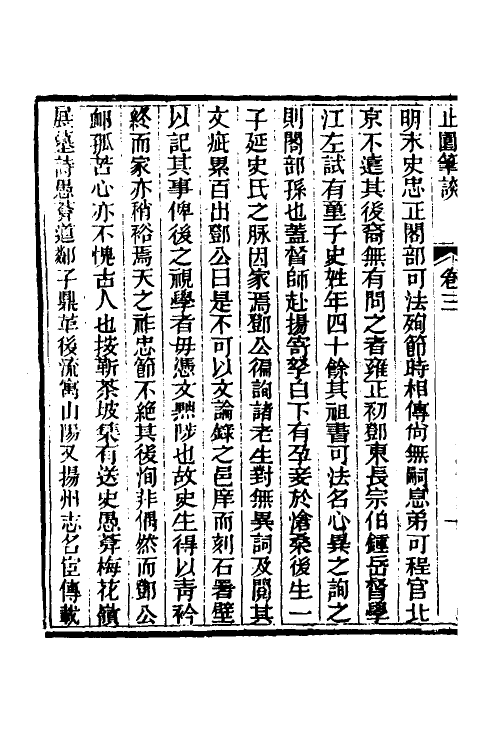 止園筆談 卷三 一
明末史忠正閣部可法殉節時相傳尙無嗣息弟可程官北
京不達其後裔無有問之者雍正初鄧東長宗伯鍾岳督學
江左試有童子史姓年四十餘其祖書可法名心異之詢之
則閣部孫也蓋督師赴揚寄孥白下有孕妾於滄桑後生一
子延史氏之脉因家焉鄧公徧詢諸老生對無異詞及閱其
文疵累百出鄧公曰是不可以文論錄之邑庠而刻石署壁
以記其事俾後之視學者毋憑文黜陟也故史生得以靑衿
終而家亦稍裕焉天之祚忠節不絕其後洵非偶然而鄧公
卹孤苦心亦不愧古人也按靳茶坡集有送史愚葊梅花嶺
展墓詩愚葊道鄰子鼎革後流寓山陽又揚州志名宦傳載